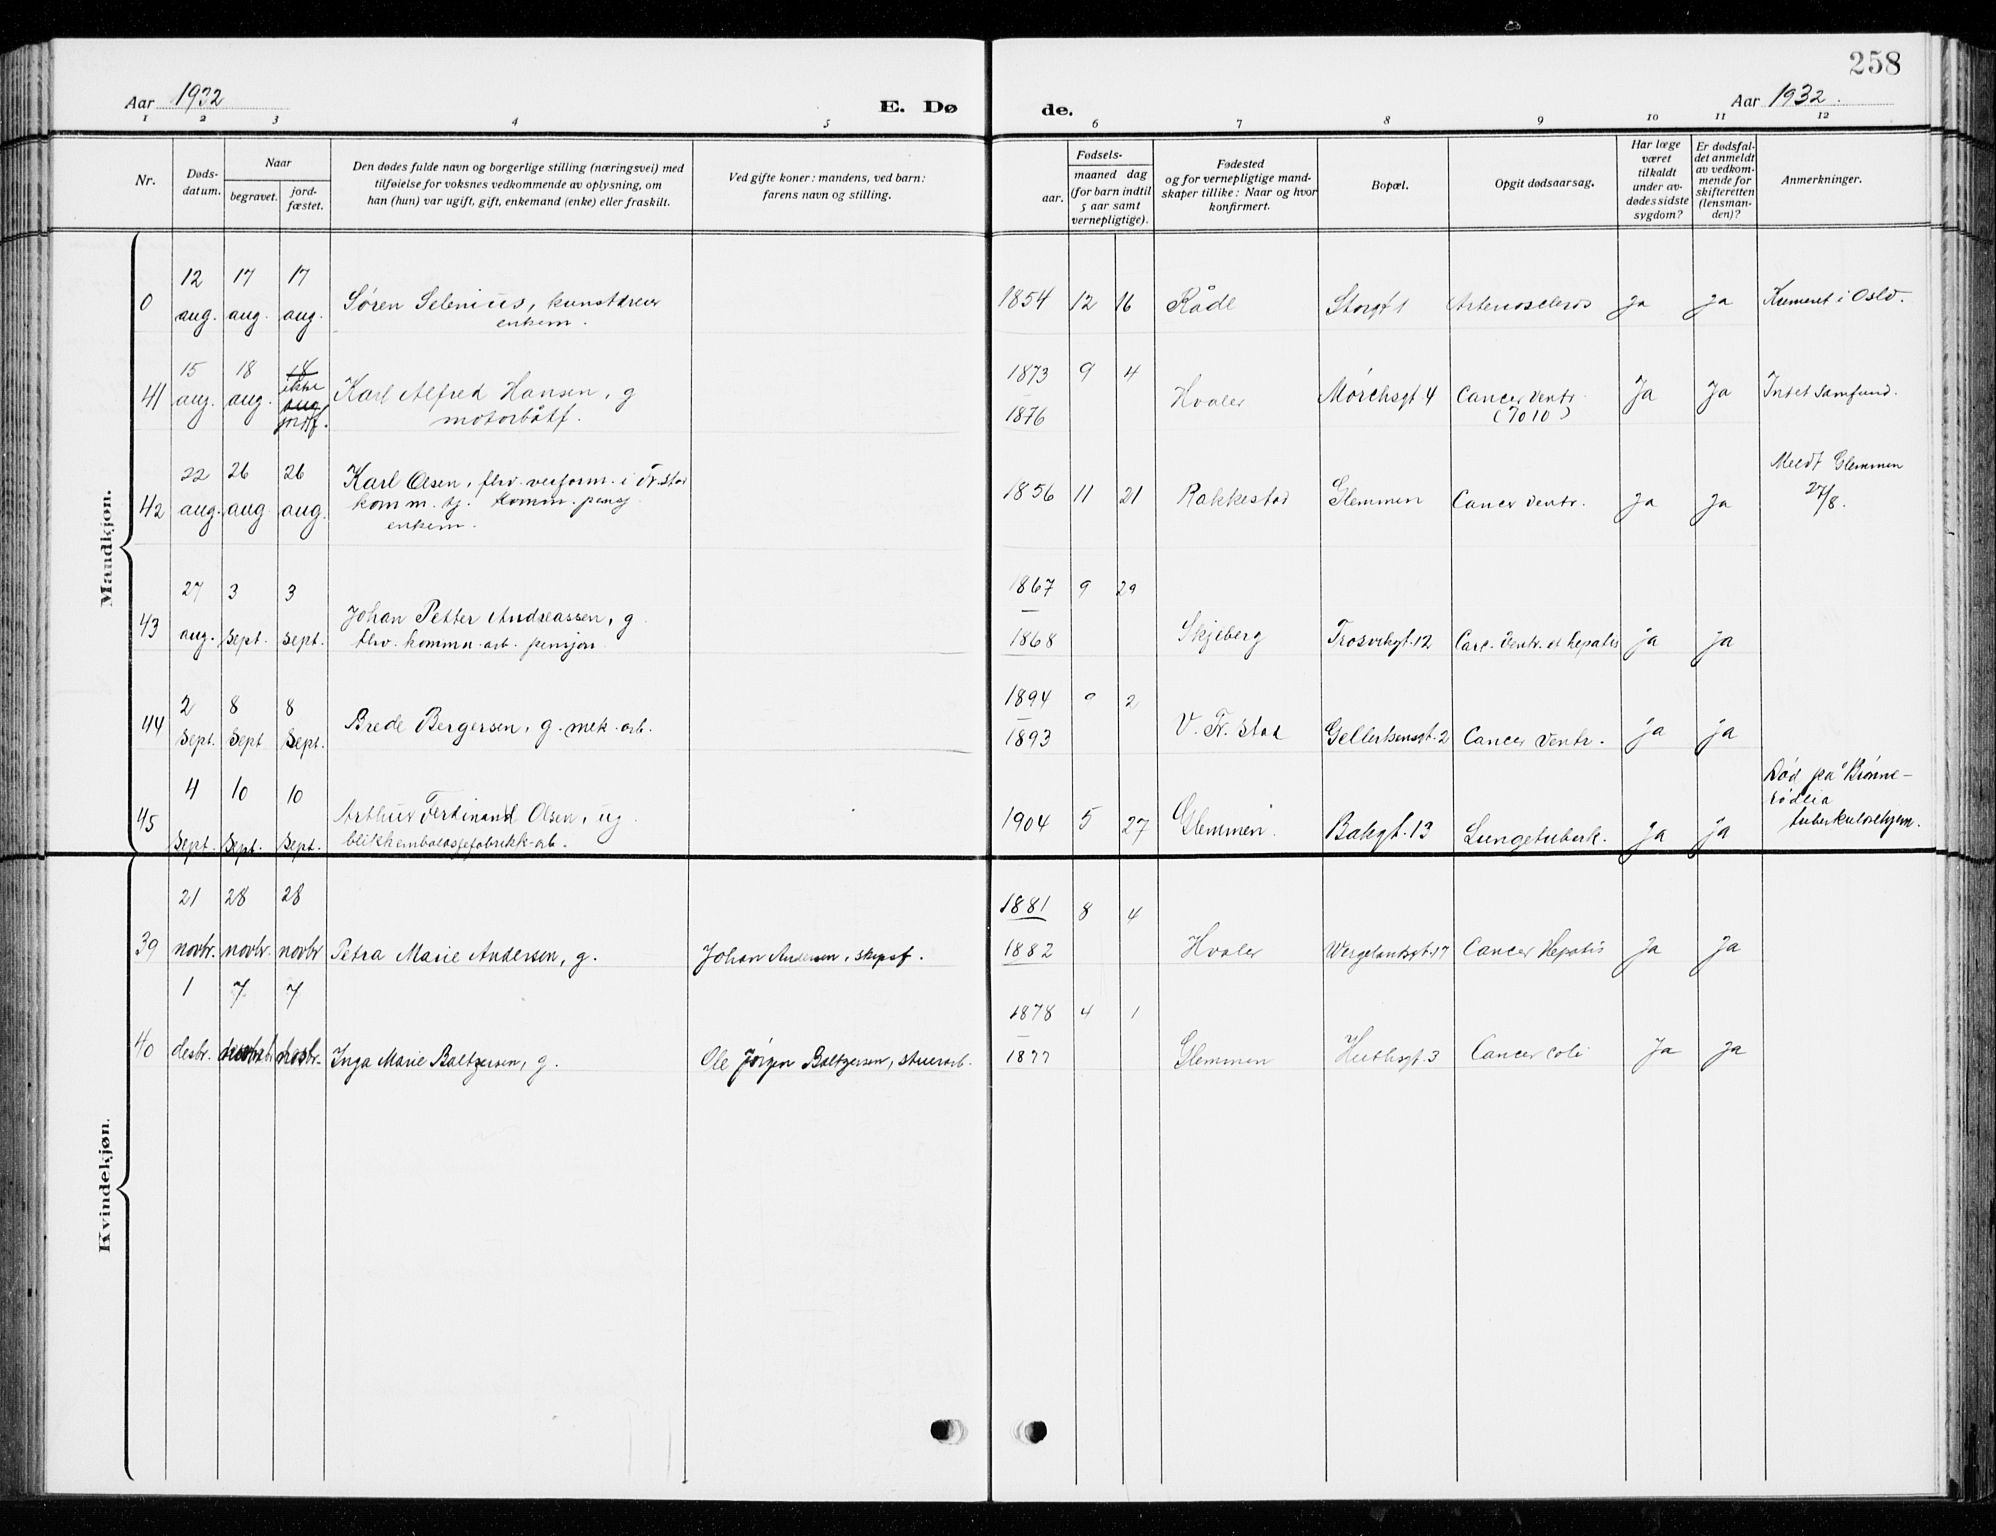 258
Aar 1932
E. Dø
de.
Aar 1932.
1 2 3 4 5 6 7 8 9 10 11 12
Nr.
Døds-
datum.
Naar
begravet.
jord-
fæstet.
Den dødes fulde navn og borgerlige stilling (næringsvei) med
tilføielse for voksnes vedkommende av oplysning, om
han (hun) var ugift, gift, enkemand (enke) eller fraskilt.
Ved gifte koner: mandens, ved barn:
farens navn og stilling.
Fødsels-
aar.
maaned dag
(for barn indtil
5 aar samt
vernepligtige).
Fødested
og for vernepligtige mand-
skaper tillike: Naar og hvor
konfirmert.
Bopæl.
Opgit dødsaarsag.
Har læge
været
tilkaldt
under av-
dødes sidste
sygdom?
Er dødsfal-
det anmeldt
av vedkom-
mende for
skifteretten
(lensman-
den)?
Anmerkninger.
Mandkjøn.
12 17 17
0 aug. aug. aug. Søren Selenius, kunstdreier
enkem.
1854 12 16 Råde Storgt 1 Arterioscleros ja ja Kremert i Oslo.
15 18 18
ikke
41 aug. aug. aug
jordf.
Karl Alfred Hansen, g
motorbåtf.
1873 9 4
1876
Hvaler Mørchsgt. 4 Cancer Ventr.
Ja Ja Intet samfund.
22 26 26
42 aug. aug aug.
Karl Olsen, fhv. verform. i Fr.stad
komm. tj. komm. pensj
enkem.
1856 11 21 Rakkestad Glemmen Cancer Ventr. ja ja
Meldt Glemmen
27/8.
27 3 3
43 aug. sept. sept.
Johan Petter Andreassen, g.
fhv. kommu. arb. pensjon
1867 9 29
1868
Skjeberg Trosvikgt. 12 Carc. Ventr. et hepatis ja ja
2 8 8
44 sept. sept sept.
Brede Bergersen, g. mek. arb.
1894 9 2
1893
V. Fr. stad Gellertsensgt. 2 Cancer Ventr. ja ja
4 10 10
45 sept. sept. sept.
Arthur Ferdinand Olsen, ug.
blikkemballasjefabrikk-arb.
1904 5 27 Glemmen. Bakgt. 13 Lungetuberk. ja ja
Død på Brønne-
rødlia
tuberkulosehjem.
Kvindekjøn.
21 28 28
39 novbr. novbr. novbr Petra Marie Andersen, g. Johan Andersen, skipsf.
1881 8 4
1882
Hvaler Wergelandsgt. 17 Cancer Hepatis Ja Ja
1 7 7
40 desbr. desbr. Inga Marie Baltzersen, g. Ole Jørgen Baltzersen, stuerarb.
1878 4 1
1877
Glemmen Huthsgt. 3 Cancer coli Ja ja